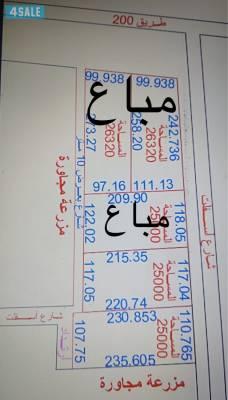 4SALE
طريق 200
99.938 99.938
مباع
المساحة 26320
المساحة 26320
273.27
258.20
242.736
97.16 111.13
209.90
مباع
المساحة 25000
122.02
118.05
شارع بعرض 10 متر
مزرعة مجاورة
شارع أسفلت
215.35
المساحة 25000
117.05
117.04
220.74
شارع أسفلت
230.853
المساحة 25000
107.75
110.765
235.605
مزرعة مجاورة